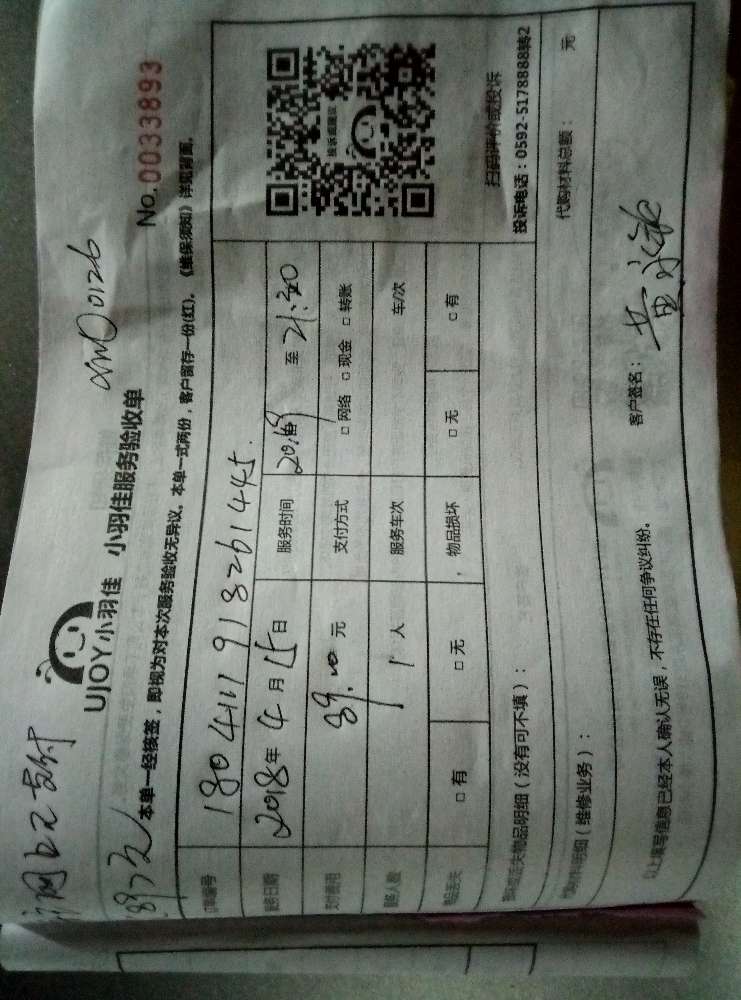 网上已支付
89元
XM00126
UJOY小羽佳 小羽佳服务验收单
No.0033893
本单一经核签，即视为对本次服务验收无异议。本单一式两份，客户留存一份(红)。《维保须知》详见背面。
订单编号 180411191826 1445
服务日期 2018年4月15日 服务时间 至 21:30
支付费用 89.00元 支付方式 □ 网络 □ 现金 □ 转账
服务人数 1 人 服务车次 车/次
物品丢失 □ 有 □ 无 物品损坏 □ 无 □ 有
投诉或建议
扫码评价或投诉
投诉电话：0592-5178888转2
损坏或丢失物品明细（没有可不填）：
代购材料明细（维修业务）： 代购材料总额： 元
以上填写信息已经本人确认无误，不存在任何争议纠纷。 客户签名：